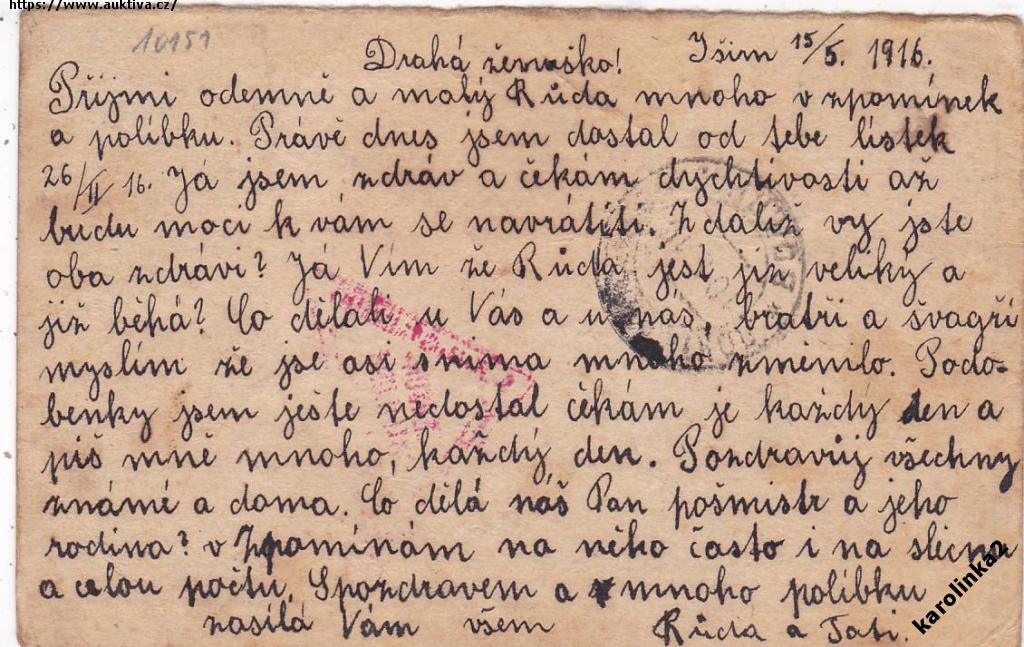 https://www.auktiva.cz/
10151
Drahá ženuško! Išim 15/5. 1916.
Přijmi odemně a malý Růda mnoho v zpomínek
a polibku. Právě dnes jsem dostal od tebe lístek
26/II 16. Já jsem zdráv a čékám dychtivasti až
budu moci k vám se navrátiti. Zdaliž vy jste
oba zdrávi? Já Vím že Růda jest již veliký a
již běhá? Co dělali u Vás a u nás, bratři a švagři
myslím že jse asi snima mnoho změnilo. Podo-
benky jsem ješte nedostal čékám je každý den a
piš mně mnoho, každý den. Pozdravuj všechny
známé a doma. Co dělá náš Pan pošmistr a jeho
rodina? v Zpomínám na něho často i na slečnu
a celou počtu. Spozdravem a mnoho polibku
zasílá Vám všem Růda a Tati.
karolinka2